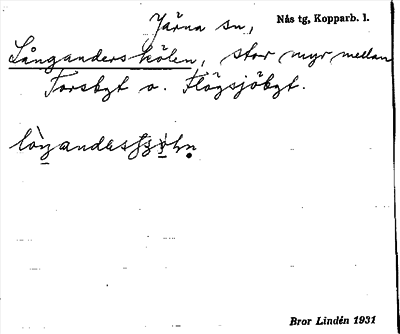 Järna sn, Nås tg, Kopparb. l.
Långanders kölen, stor myr mellan
Forsbyt o. Flögsjöbyt.
Bror Lindén 1931